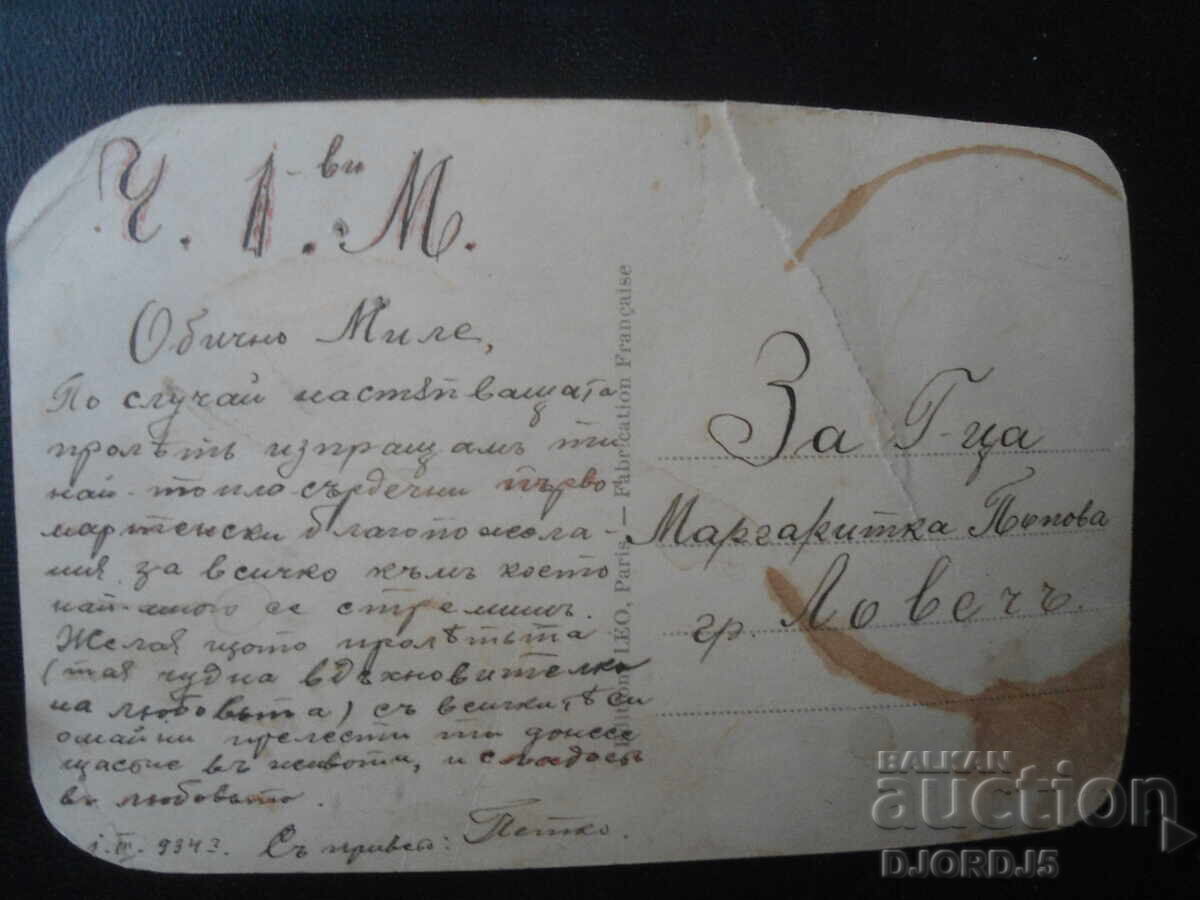 Ч. 1-ви М.
Обично Миле,
По случай настѫпващата
пролѣть изпращамъ ти
най-топло сърдечни първо-
мартенски благопожела-
ния за всичко към коєто
най-много се стремишъ.
Желая щото пролѣтьта
(тая чудна вдъхновителка
на любовьта) съ всички тѣ си
омайни прелести ти донесе
щастие въ живота, и сладость
въ любовьта.
1. III. 934 г. Съ приветъ: Петко.
Edition LEO, Paris — Fabrication Française
За Г-ца
Маргаритка Попова
гр. Ловечъ.
BALKAN
auction
DJORDJ5